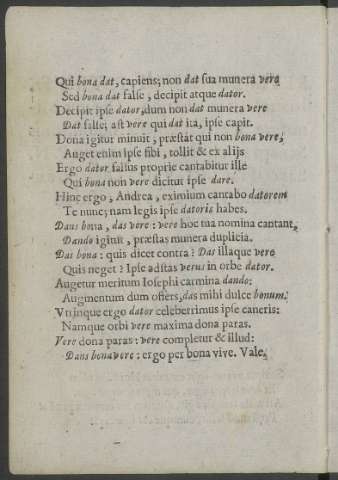 Qui bona dat, capiens; non dat sua munera vero
Sed bona dat false, decipit atque dator.
Decipit ipse dator, dum non dat munera vere
Dat false; ast vere qui dat ita, ipse capit.
Dona igitur minuit, præstat qui non bona vere;
Auget enim ipse sibi, tollit & ex alijs
Ergo dator falsus proprie cantabitur ille
Qui bona non vere dicitur ipse dare.
Hinc ergo, Andrea, eximium cantabo datorem
Te nunc; nam legis ipse datoris habes.
Dans bona, das vere: vere hoc tua nomina cantant,
Dando igitur, præstas munera duplicia.
Das bona: quis dicet contra? Das illaque vero
Quis neget? Ipse adstas verus in orbe dator.
Augetur meritum Iosephi carmina dando:
Augmentum dum offers, das mihi dulce bonum.
Vtrinque ergo dator celeberrimus ipse caneris:
Namque orbi vere maxima dona paras.
Vere dona paras: vere completur & illud:
Dans bona vere: ergo per bona vive. Vale.